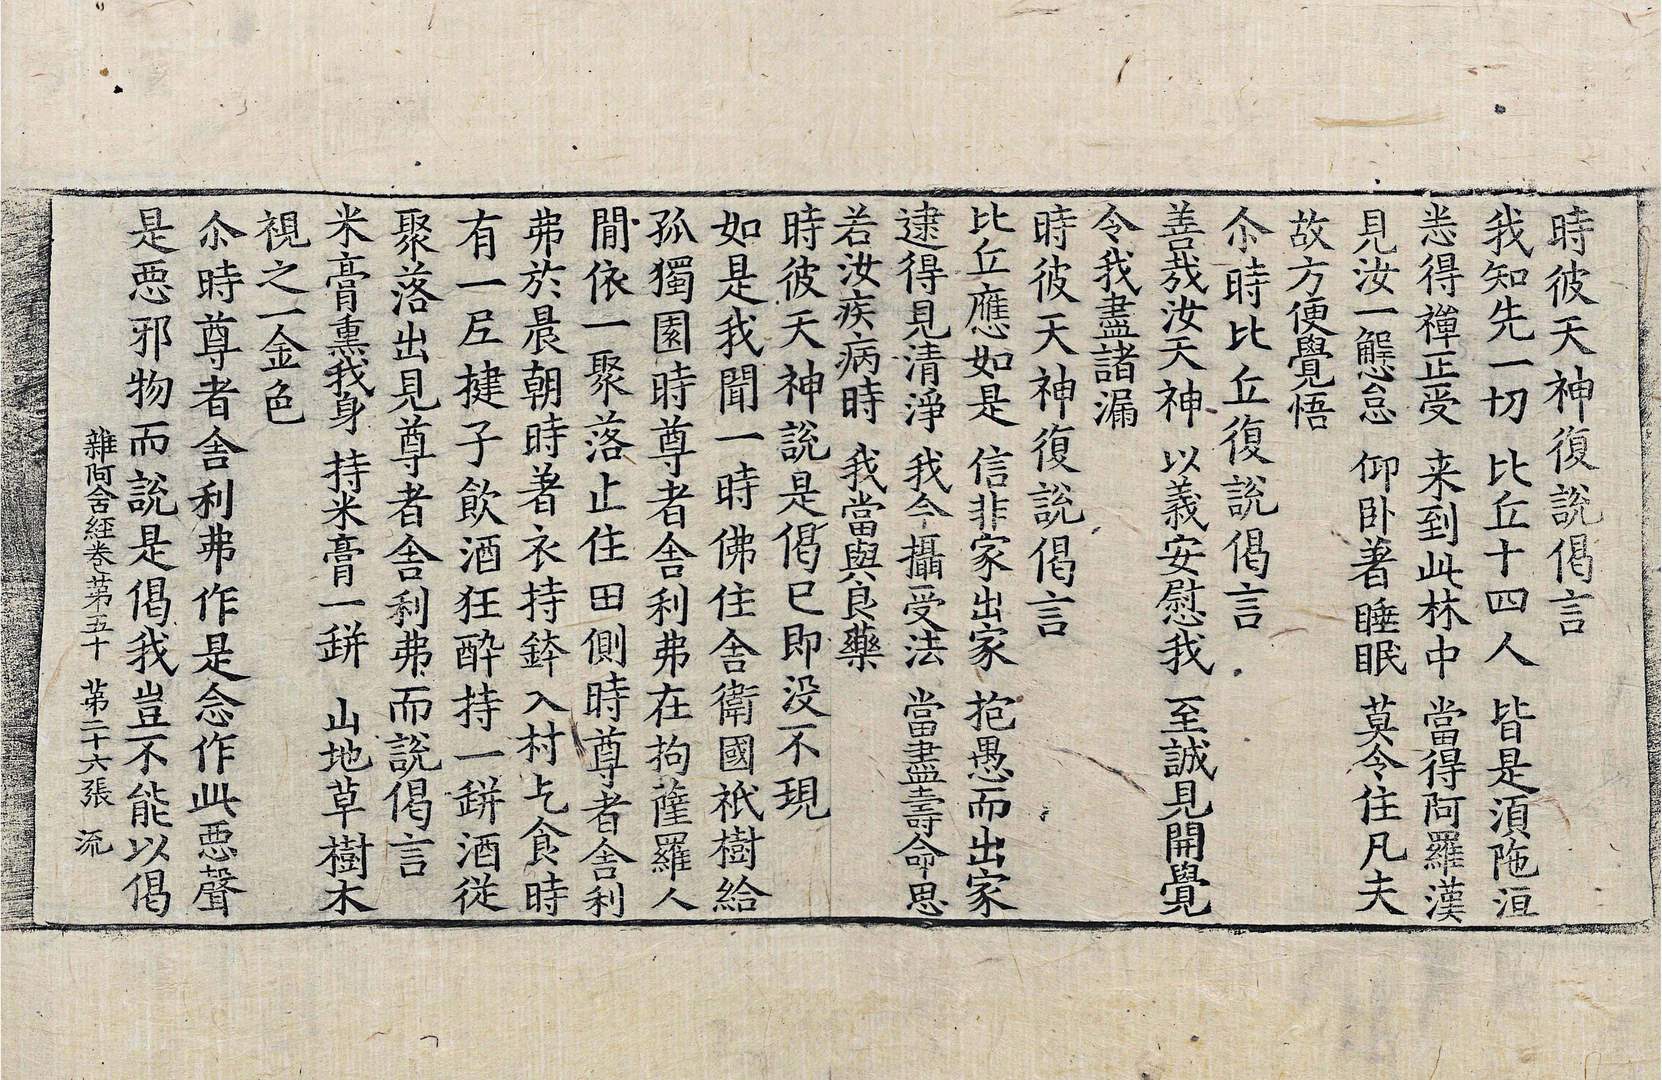 時彼天神復說偈言
我知先一切 比丘十四人 皆是湏陁洹
悉得禪正受 来到此林中 當得阿羅漢
見汝一懈怠 仰卧著睡眠 莫令住凡夫
故方便覺悟
尒時比丘復說偈言
善哉汝天神 以義安慰我 至誠見開覺
令我盡諸漏
時彼天神復說偈言
比丘應如是 信非家出家 抱愚而出家
逮得見清淨 我今攝受法 當盡壽命思
若汝疾病時 我當與良藥
時彼天神說是偈已即没不現
如是我聞一時佛住舍衛國祇樹給
孤獨園時尊者舍利弗在拘薩羅人
閒依一聚落止住田側時尊者舍利
弗於晨朝時著衣持鉢入村乞食時
有一尼揵子飲酒狂醉持一缾酒從
聚落出見尊者舍利弗而說偈言
米膏熏我身 持米膏一缾 山地草樹木
視之一金色
尒時尊者舍利弗作是念作此惡聲
是惡邪物而說是偈我豈不能以偈
雜阿含經卷苐五十 苐二十六張 流